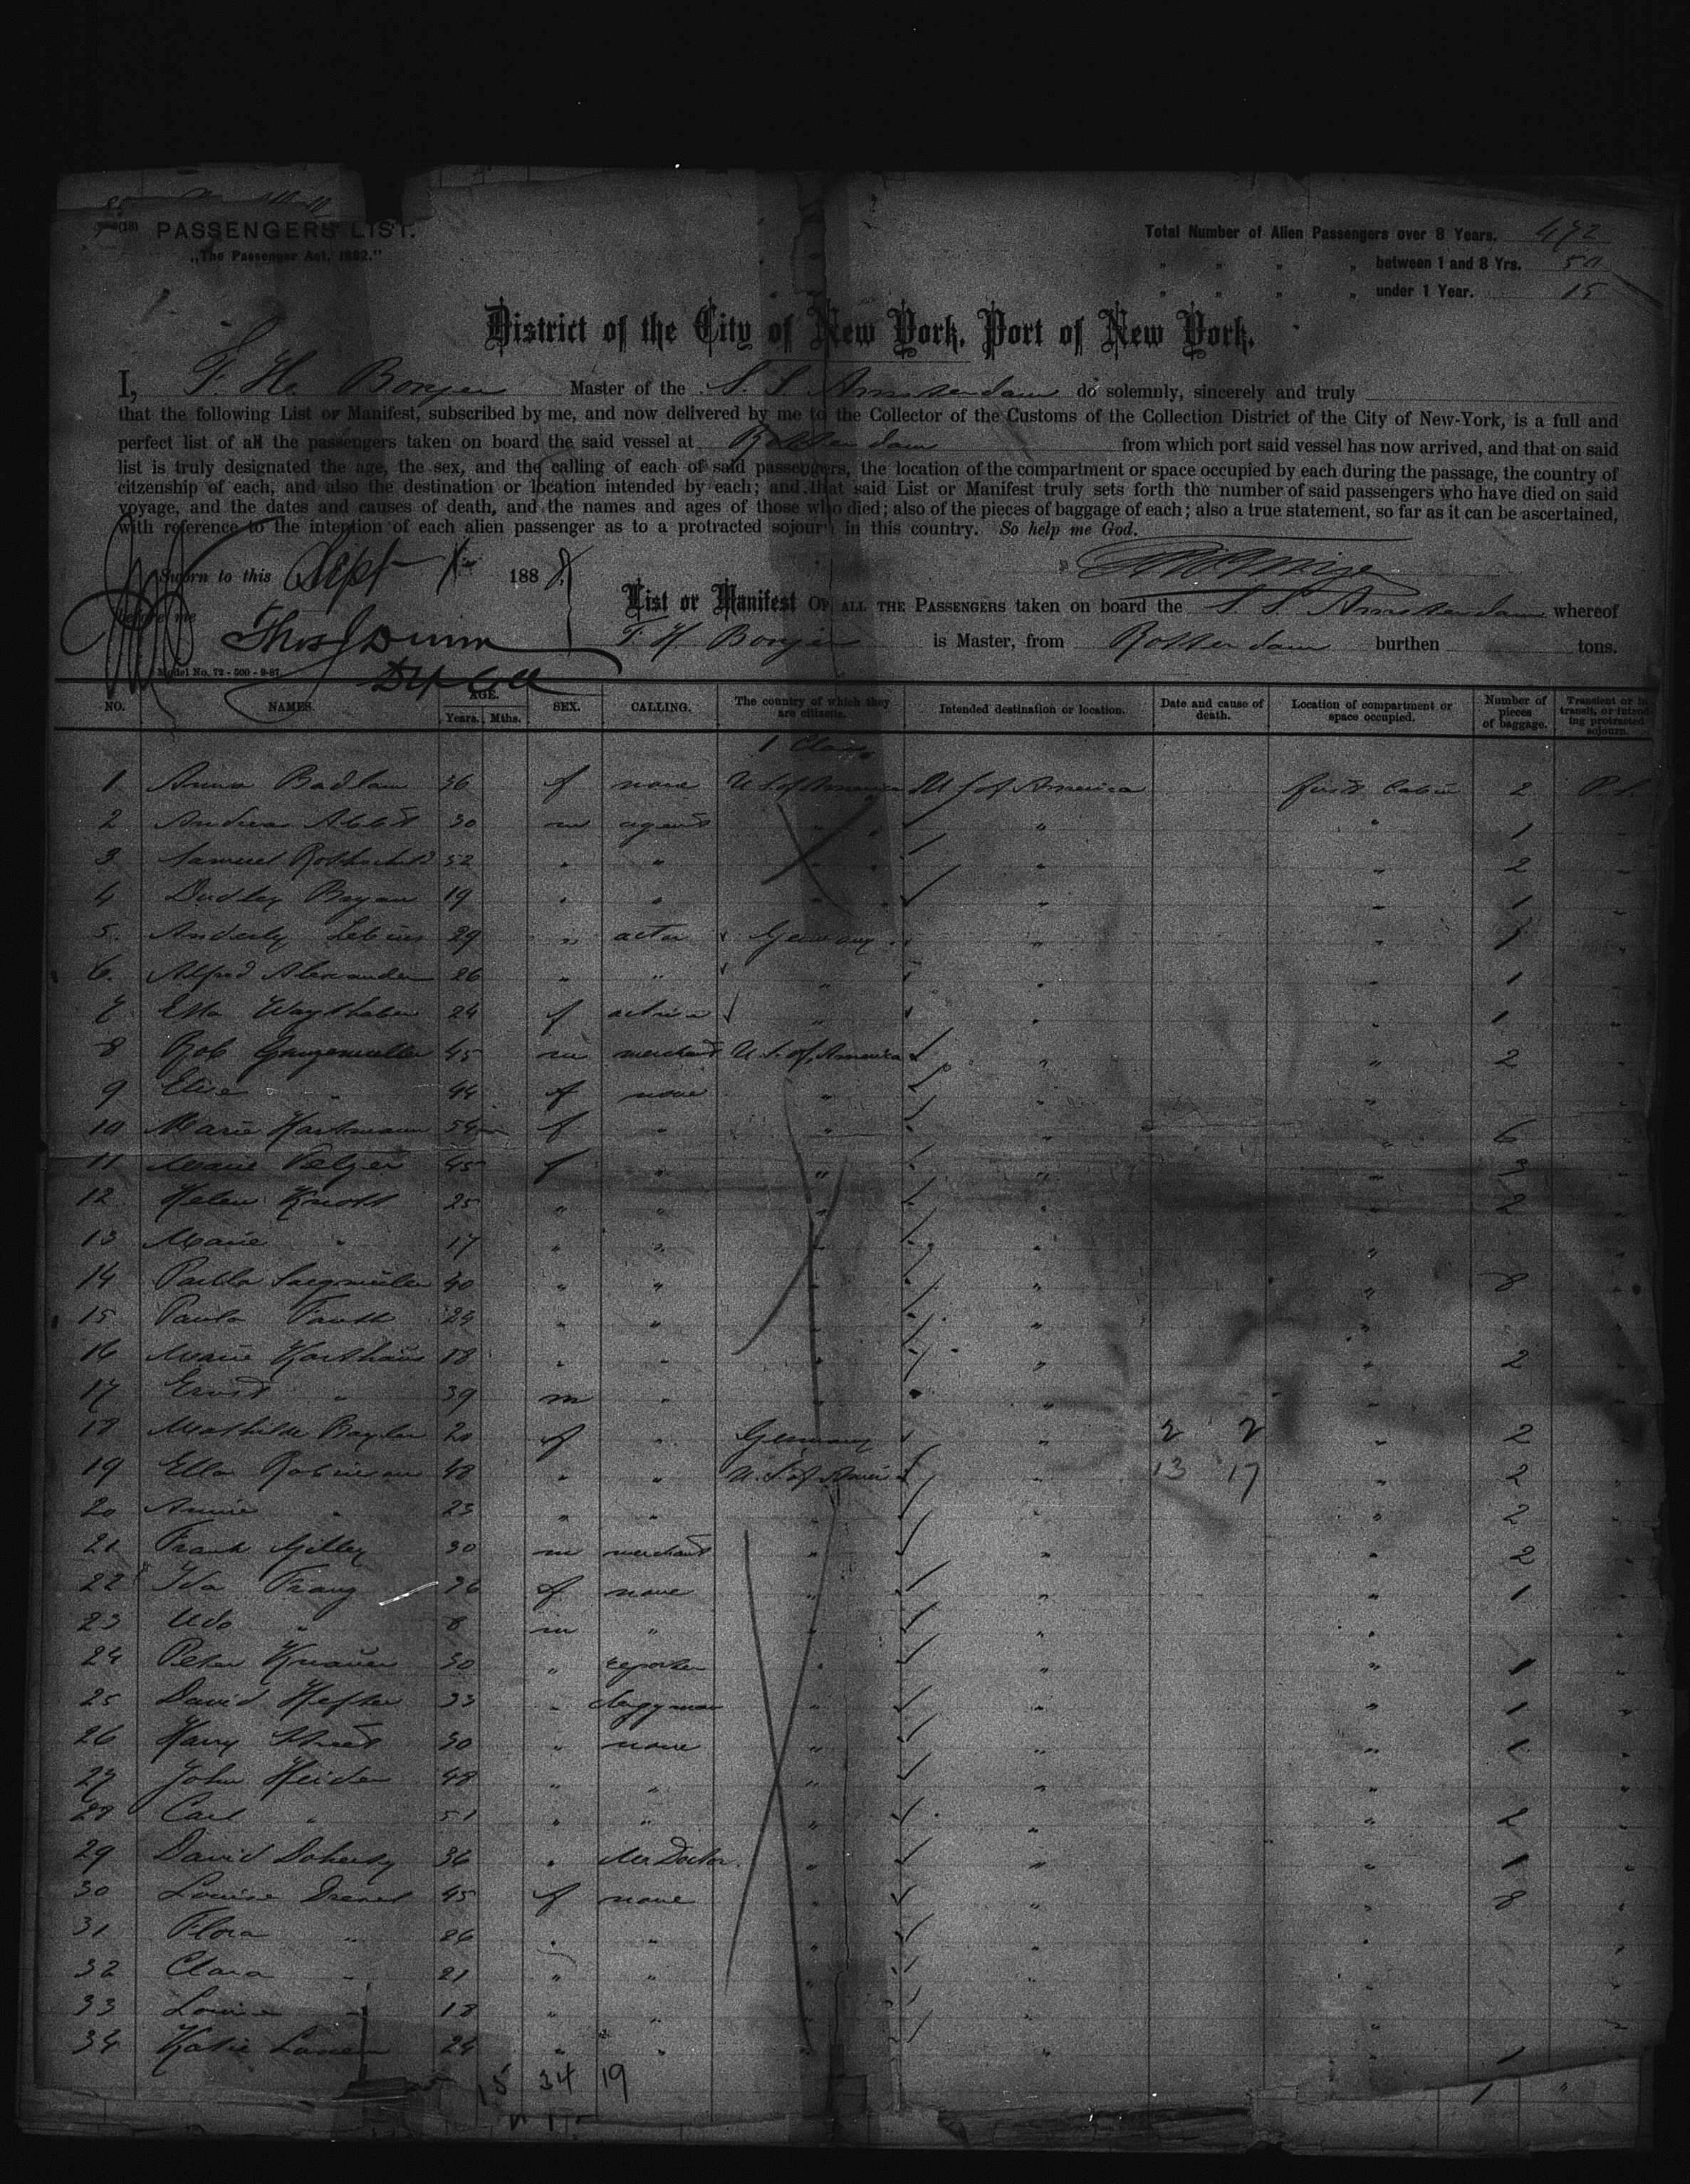 PASSENGERS LIST.
„The Passenger Act, 1882."
Total Number of Alien Passengers over 8 Years. 472
" " " " between 1 and 8 Yrs. 50
" " " " under 1 Year. 15
District of the City of New York, Port of New York.
I, F. H. Bonjer Master of the S. S. Amsterdam do solemnly, sincerely and truly
that the following List or Manifest, subscribed by me, and now delivered by me to the Collector of the Customs of the Collection District of the City of New-York, is a full and
perfect list of all the passengers taken on board the said vessel at Rotterdam from which port said vessel has now arrived, and that on said
list is truly designated the age, the sex, and the calling of each of said passengers, the location of the compartment or space occupied by each during the passage, the country of
citzenship of each, and also the destination or location intended by each; and that said List or Manifest truly sets forth the number of said passengers who have died on said
voyage, and the dates and causes of death, and the names and ages of those who died; also of the pieces of baggage of each; also a true statement, so far as it can be ascertained,
with reference to the intention of each alien passenger as to a protracted sojourn in this country. So help me God.
Sworn to this Sept 1888
before me Thos J Dunn
List or Manifest OF ALL THE PASSENGERS taken on board the S. S. Amsterdam whereof
F. H. Bonjer is Master, from Rotterdam burthen tons.
Model No. 72 - 500 - 9-87.
NO. NAMES. AGE. Years. Mths. SEX. CALLING. The country of which they are citizens. Intended destination or location. Date and cause of death. Location of compartment or space occupied. Number of pieces of baggage. Transient or in transit, or intending protracted sojourn.
1 Class
1 Anna Badlam 36 f none U S of America U S of America first Cabin 2
2 Andrew Abbot 30 m agent " " " 1
3 Samuel Rothschild 52 " " " " " 2
4 Dudley Bryan 19 " " " " " 1
5. Anderly Lebius 29 " actor Germany " " 1
6. Alfred Alexander 26 " " " " " 1
7 Etta 24 f " " " 1
8 Rob 45 m merchant U. S. of America " " 2
9 Elise " 44 f none " " "
10 Marie Hartmann 54 f " " " " 6
11 Marie 45 f " " " " 3
12 Helen Knott 25 " " " " " 2
13 Marie " 17 " " " " "
14 40 " " " " " 8
15 Paula 24 " " " " "
16 Marie Korthaus 18 " " " " " 2
17 Ernst " 39 m " " " "
18 Mathilde 20 f " Germany " 2 2 " 2
19 Ella Robinson 48 " " U. S. of America " 13 17 " 2
20 Annie " 23 " " " " " 2
21 Frank Gilley 30 m merchant " " " 2
22 Ida Franz 36 f none " " " 1
23 Udo " 8 m " " " "
24 Peter Knauer 30 " reporter " " " 1
25 David Hefter 33 " clergyman " " " 1
26 Harry Street 30 " none " " " 1
27 John Heiden 48 " " " " "
28 Carl " 51 " " " " " 2
29 David Doherty 36 " Doctor " " " 1
30 Louise 45 f none " " " 8
31 Flora " 26 " " " " "
32 Clara " 21 " " " " "
33 Louise " 18 " " " " "
34 Katie 24 " " " " " 1
15 34 19 1